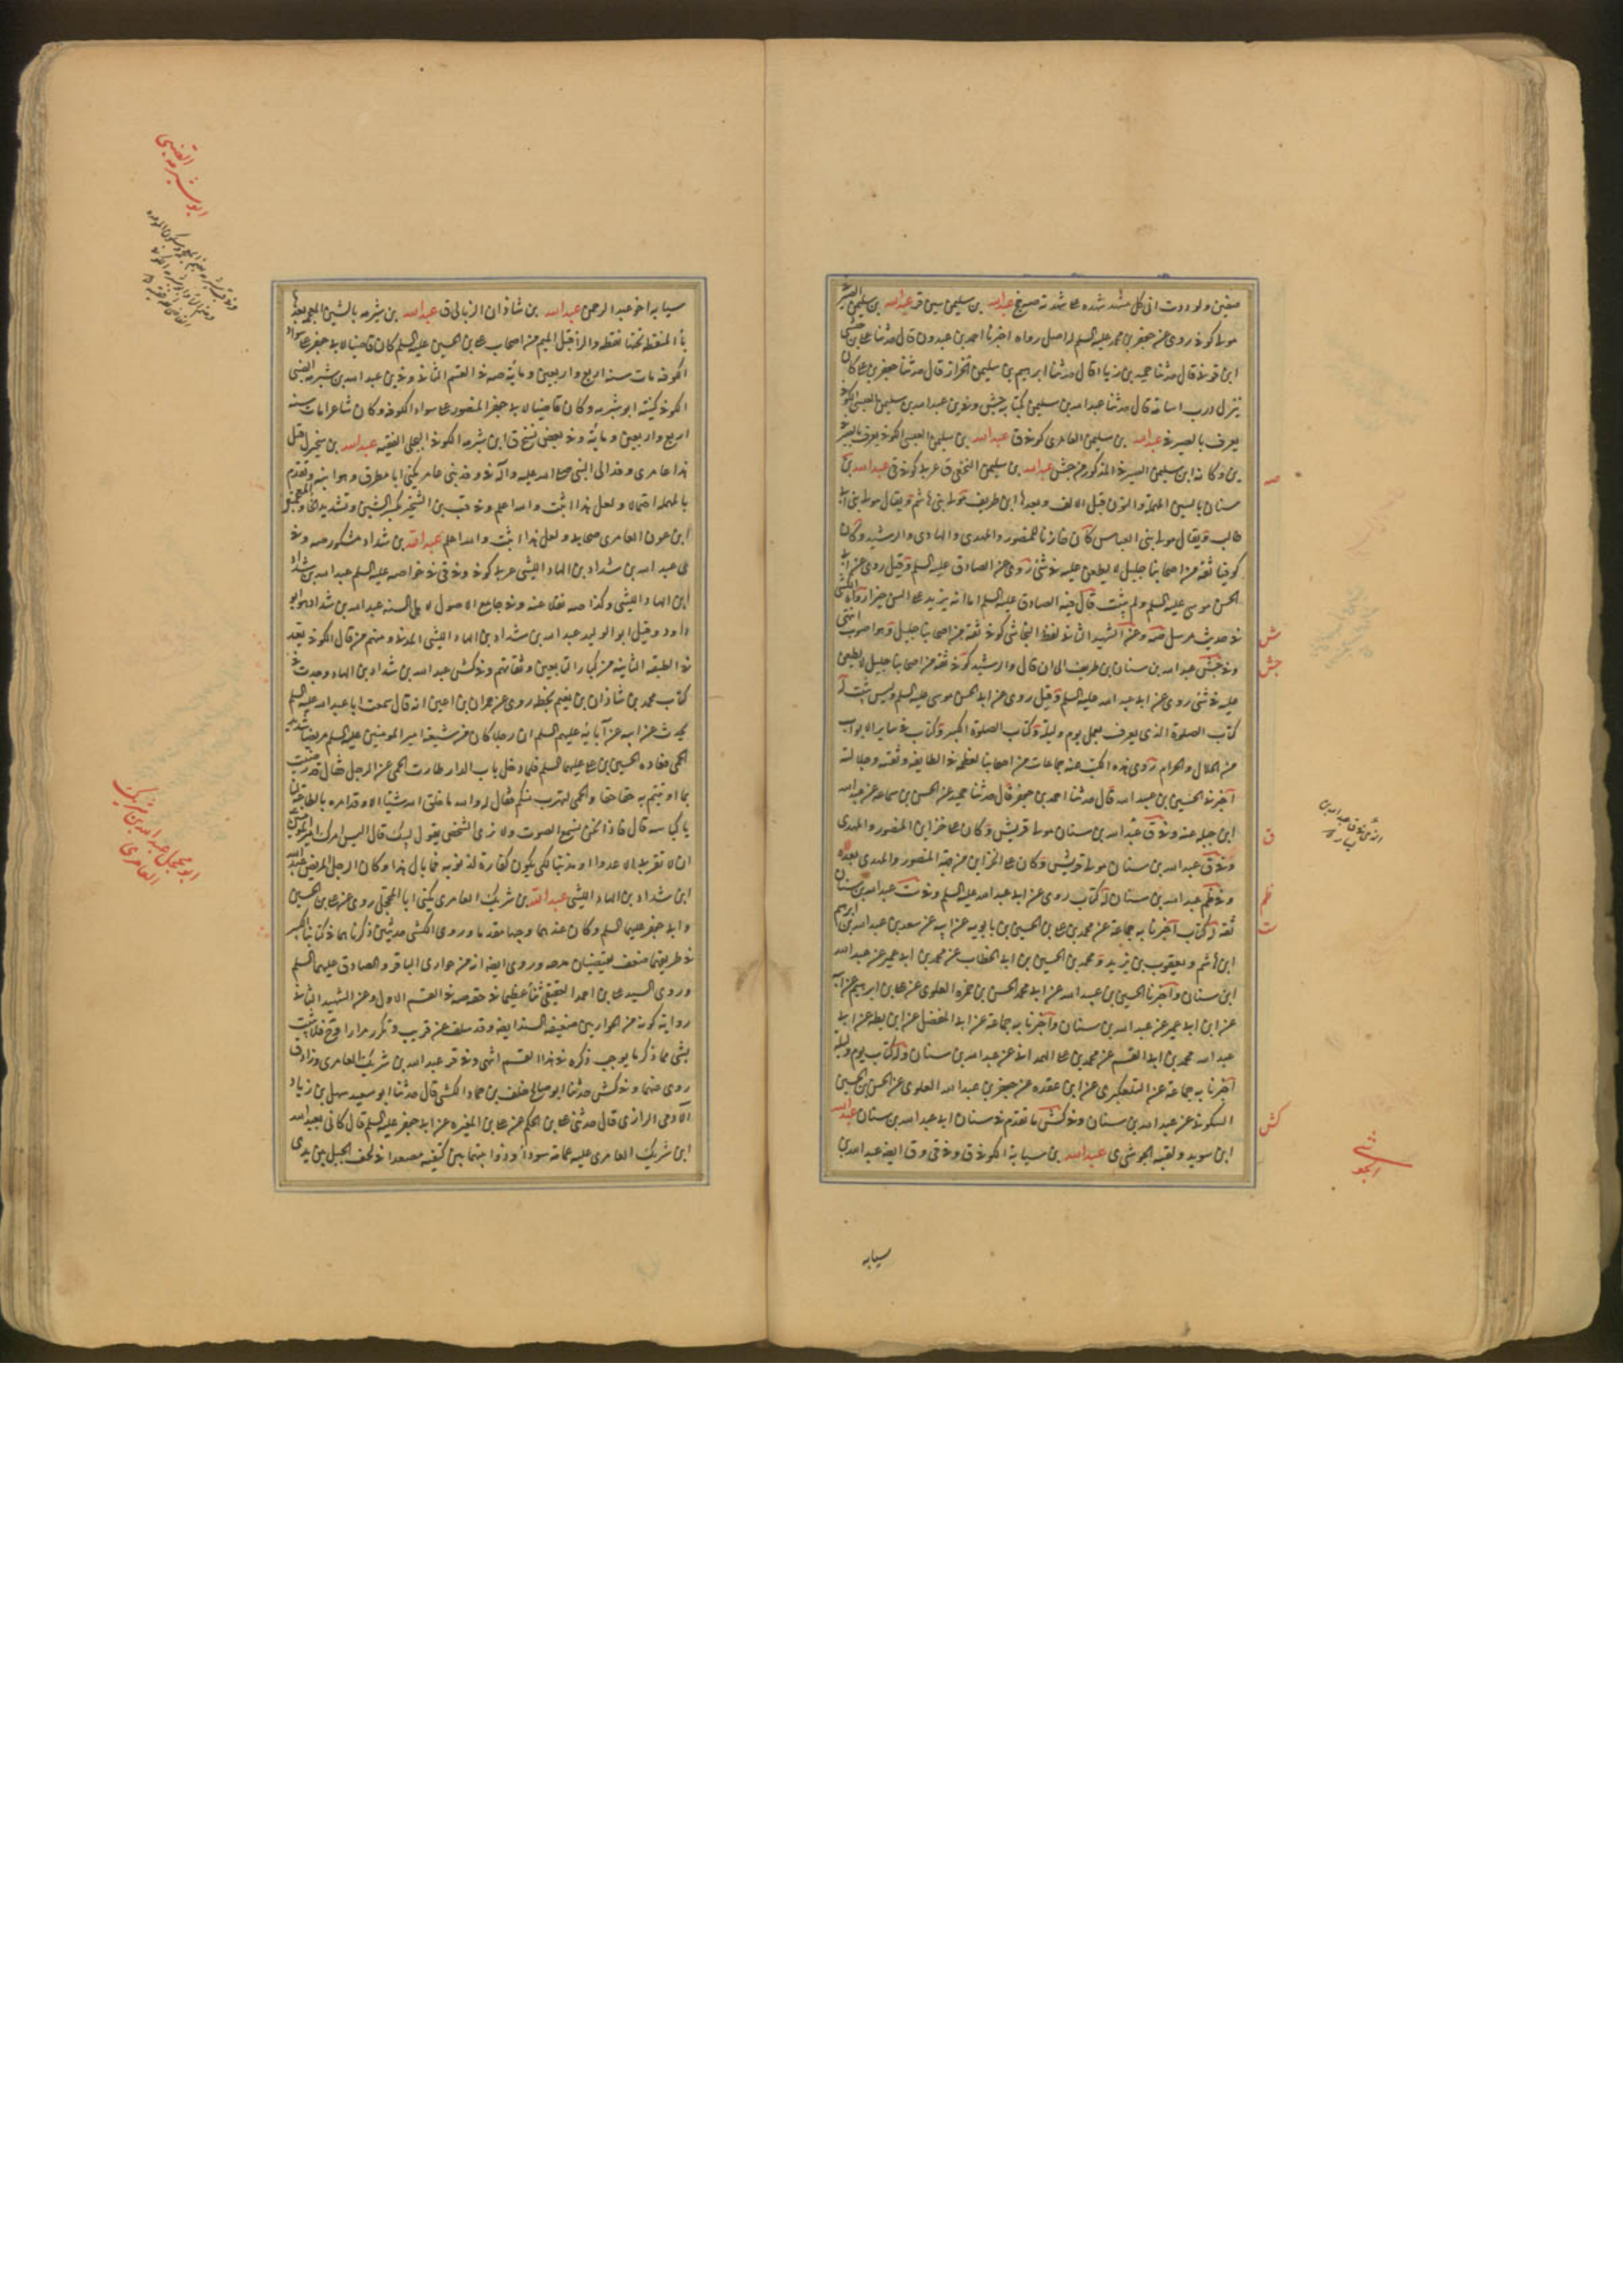 مولى كوفى روى عن جعفر بن محمد عليه السلم له اصل رواه اخبرنا احمد بن عبدون قال حدثنا على بن حبشى
ابن قونى قال حدثنا حميد بن زياد قال حدثنا ابرهيم بن سليمن الخزاز قال حدثنا جعفر بن على كان
ينزل درب اسامة قال حدثنا عبدالله بن سليمن بكتابه جش وفى عبدالله بن سليمن العبسى الكوفى
يعرف بالصيرفى عبدالله بن سليمن العامرى كوفى ق عبدالله بن سليمن العبسى الكوفى يعرف بالصيرفى
بن وكانه ابن سليمن الصيرفى المذكور من جش عبدالله بن سليمن النخعى ق عربى كوفى ق عبدالله بن
سنان بالسين المهملة والنون قبل الالف وبعدها ابن طريف مولى بنى هاشم ويقال مولى بنى ابى
طالب ويقال مولى بنى العباس كان خازنا للمنصور والمهدى والهادى والرشيد وكان
كوفيا ثقة من اصحابنا جليل لا يطعن عليه فى شئ روى عن الصادق عليه السلم وقيل روى عن ابى
الحسن موسى عليه السلم ولم يثبت قال فيه الصادق عليه السلم اما انه يزيد على السن خيرا رواه الكشى
فى حديث مرسل صه وعن الشهيد الثانى لفظ النجاشى كوفى ثقة من اصحابنا جليل وهو اصوب انتهى
وفى جش عبدالله بن سنان بن طريف الى ان قال والرشيد كوفى ثقة من اصحابنا جليل لا يطعن
عليه فى شئ روى عن ابى عبدالله عليه السلم وقيل روى عن ابى الحسن موسى عليه السلم وليس بثبت له
كتاب الصلوة الذى يعرف بعمل يوم وليلة وكتاب الصلوة الكبير وكتاب فى ساير الابواب
من الحلال والحرام روى هذه الكتب عنه جماعات من اصحابنا لعظمه فى الطايفه وثقته وجلالته
اخبرنى الحسين بن عبيدالله قال حدثنا احمد بن جعفر قال حدثنا حميد عن الحسن بن سماعه عن عبدالله
ابن جبله عنه وفى ق عبدالله بن سنان مولى قريش وكان على خزاين المنصور والمهدى
وفى ق عبدالله بن سنان مولى قريش وكان على الخزاين من قبل المنصور والمهدى بعده
وفى ظم عبدالله بن سنان له كتاب روى عن ابى عبدالله عليه السلم وفى ت عبدالله بن سنان
ثقة له كتاب اخبرنا به جماعة عن محمد بن على بن الحسين بن بابويه عن ابيه عن سعد بن عبدالله بن ابرهيم
ابن هاشم ويعقوب بن يزيد ومحمد بن الحسين بن ابى الخطاب عن محمد بن ابى عمير عن عبدالله
ابن سنان واخبرنا الحسين بن عبيدالله عن ابى محمد الحسن بن حمزه العلوى عن على بن ابرهيم عن ابيه
عن ابن ابى عمير عن عبدالله بن سنان واخبرنا به جماعة عن ابى المفضل عن ابن بطه عن ابى
عبدالله محمد بن ابى القسم عن محمد بن على الهمدانى عن عبدالله بن سنان وله كتاب يوم وليلة
اخبرنا به جماعة عن التلعكبرى عن ابن عقده عن جعفر بن عبدالله العلوى عن الحسن بن الحسين
السكونى عن عبدالله بن سنان وفى كش ما تقدم فى سنان ابى عبدالله بن سنان عبدالله
ابن سويد ولقبه الجوشى ى عبدالله بن سيابه الكوفى ق وفى ق وق ايضا عبدالله بن
سيابه
صه
ش
جش
ق
ظم
ت
كش
سيابه اخو عبدالرحمن عبدالله بن شاذان الزبالى ق عبدالله بن شبرمه بالشين المعجمه بعدها
باء المنقطه تحتها نقطه والراء قبل الميم من اصحاب على بن الحسين عليه السلم كان قاضيا لابى جعفر على سواد
الكوفه مات سنه اربع واربعين ومائه صه فى القسم الثانى وفى ين عبدالله بن شبرمه الضبى
الكوفى كنيته ابو شبرمه وكان قاضيا لابى جعفر المنصور على سواد الكوفه وكان شاعرا مات سنه
اربع واربعين ومائه وفى بعض نسخ ق ابن شبرمه الكوفى البجلى الفقيه عبدالله بن شخير ل قيل
هذا عامرى وفد الى النبى صلى الله عليه وآله فى وفد بنى عامر يكنى ابا مطرف وهو ابنه وتقدم
ابن عون العامرى صحابى ولعل هذا اثبت والله اعلم عبدالله بن شداد مشكور صه وفى
ى عبدالله بن شداد بن الهاد الليثى عربى كوفى وفى قى فى خواصه عليه السلم عبدالله بن شداد
ابن الهاد الليثى وكذا صه نقلا عنه وفى جامع الاصول لاهل السنه عبدالله بن شداد هو ابو
داود وقيل ابو الوليد عبدالله بن شداد بن الهاد الليثى المدنى ومنهم من قال الكوفى يعد
فى الطبقه الثانيه من كبار التابعين وثقاتهم وفى كش عبدالله بن شداد بن الهاد وجدت فى
كتاب محمد بن شاذان بن نعيم بخطه روى عن حمران بن اعين انه قال سمعت ابا عبدالله عليه السلم
يحدث عن ابيه عن آبائه عليهم السلم ان رجلا كان من شيعة امير المومنين عليه السلم مريضا شديد
الحمى فعاده الحسين بن على عليهما السلم فلما دخل باب الدار طارت الحمى عن الرجل فقال قد رضيت
بما اوتيتم به حقا حقا والحمى لتهرب منكم فقال له والله ما خلق الله شيئا الا وقد امره بالطاعة لنا
يا كباسه قال فاذا نحن نسمع الصوت ولا نرى الشخص يقول لبيك قال اليس امرك امير المومنين
ان لا تقربى الا عدوا او مذنبا لكى يكون كفارة لذنوبه فما بال هذا وكان الرجل المريض عبدالله
ابن شداد بن الهاد الليثى عبدالله بن شريك العامرى يكنى ابا المحجل روى عن على بن الحسين
وابى جعفر عليهما السلم وكان عندهما وجيها مقدما وروى الكشى حديثين ذكرناهما فى كتابنا الكبير
فى طريقهما ضعف يقتضيان مدحه وروى ايضا انه من حوارى الباقر والصادق عليهما السلم
وروى السيد على بن احمد العقيقى ثناء عظيما فى حقه صه فى القسم الاول وعن الشهيد الثانى
رواية كونه من الحواريين ضعيفة السند ايضا وقد سلف عن قريب وتكرر مرارا
بشى مما ذكر ما يوجب ذكره فى هذا القسم انتهى وفى قر عبدالله بن شريك العامرى وزاد ق
روى عنهما وفى كش حدثنا ابو صالح خلف بن حماد الكشى قال حدثنا ابو سعيد سهل بن زياد
الآدمى الرازى قال حدثنى على بن الحكم عن على بن المغيره عن ابى جعفر عليه السلم قال كانى بعبدالله
ابن شريك العامرى عليه عمامة سوداء وذوابتها بين كتفيه مصعدا فى لحف الجبل بين يدى
ابو شبرمه الضبى
ابو المحجل عبدالله بن شريك
العامرى